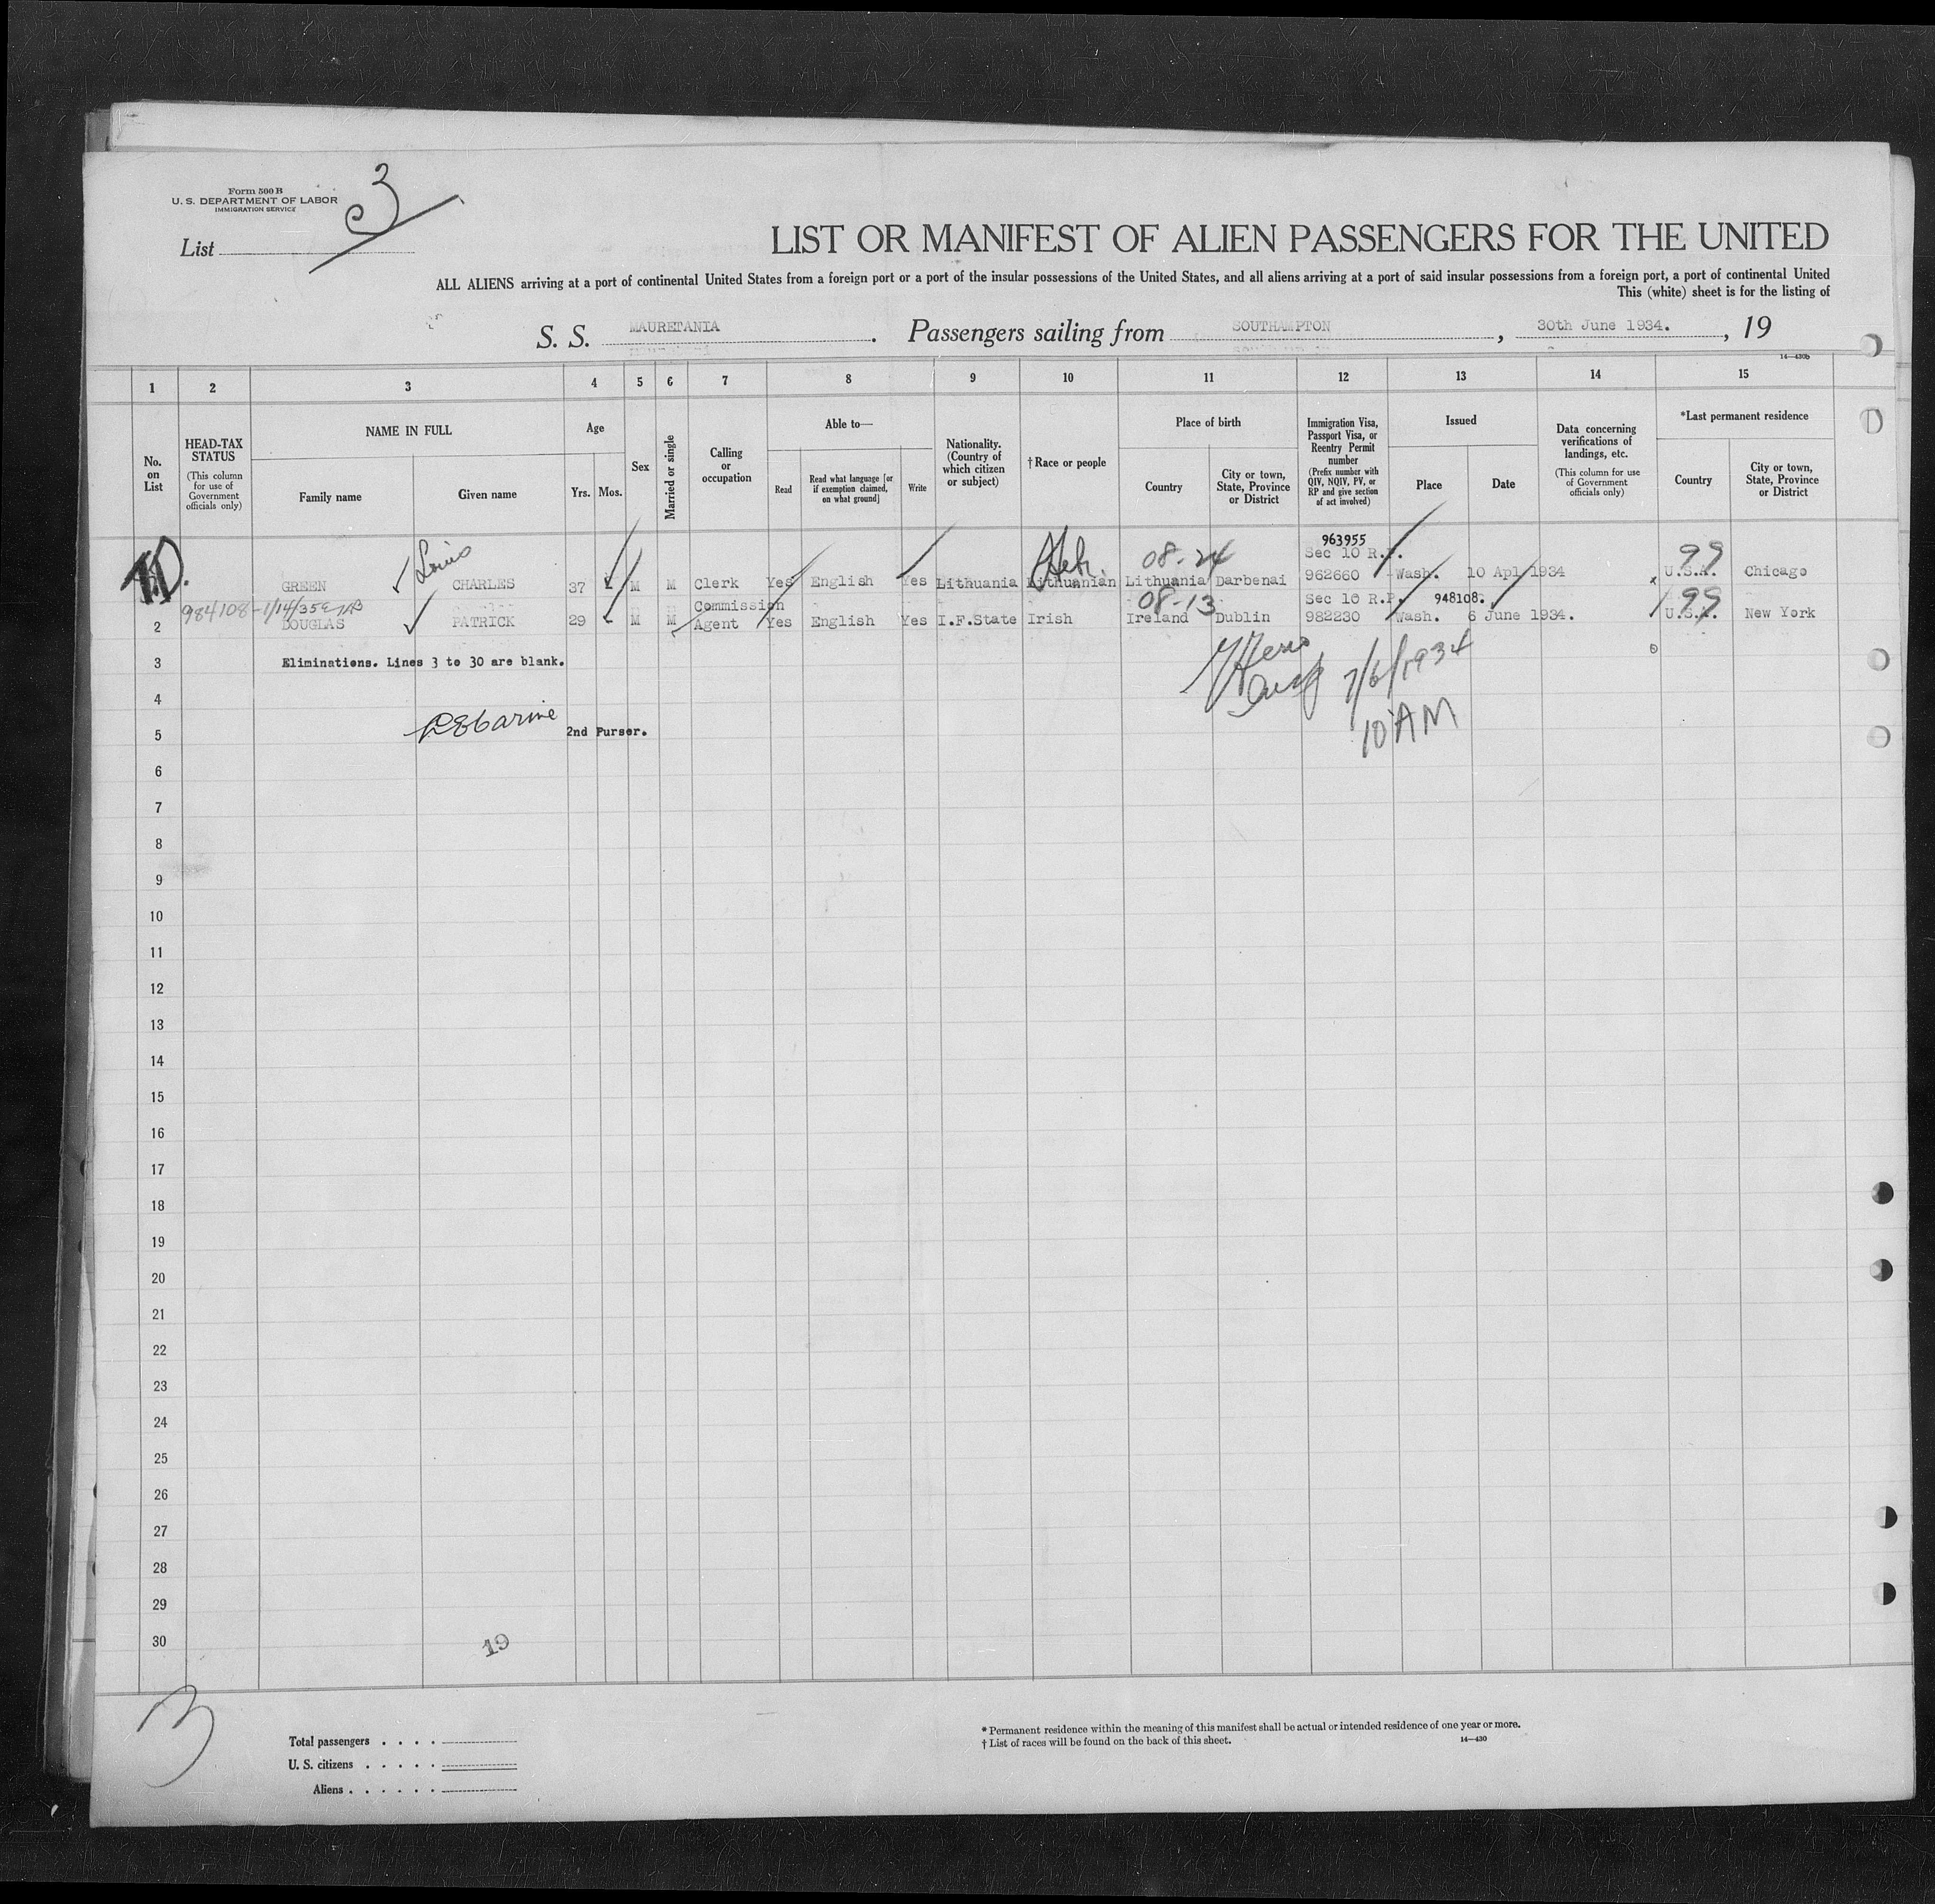 Form 500 B
U. S. DEPARTMENT OF LABOR
IMMIGRATION SERVICE
3
List
LIST OR MANIFEST OF ALIEN PASSENGERS FOR THE UNITED
ALL ALIENS arriving at a port of continental United States from a foreign port or a port of the insular possessions of the United States, and all aliens arriving at a port of said insular possessions from a foreign port, a port of continental United
This (white) sheet is for the listing of
S. S. MAURETANIA. Passengers sailing from SOUTHAMPTON, 30th June 1934., 19
14—430b
1 2 3 4 5 6 7 8 9 10 11 12 13 14 15
No. on List
HEAD-TAX STATUS (This column for use of Government officials only)
NAME IN FULL
Family name
Given name
Age
Yrs. Mos.
Sex
Married or single
Calling or occupation
Able to—
Read
Read what language [or if exemption claimed, on what ground]
Write
Nationality. (Country of which citizen or subject)
†Race or people
Place of birth
Country
City or town, State, Province or District
Immigration Visa, Passport Visa, or Reentry Permit number (Prefix number with QIV, NQIV, PV, or RP and give section of act involved)
Issued
Place
Date
Data concerning verifications of landings, etc. (This column for use of Government officials only)
*Last permanent residence
Country
City or town, State, Province or District
963955
Louis Heb. 08-24 Sec 10 R.P. 99
GREEN CHARLES 37 M M Clerk Yes English Yes Lithuania Lithuanian Lithuania Darbenai 962660 Wash. 10 Apl 1934 U.S.A. Chicago
984108-1/14/35 Commission 08-13 Sec 10 R.P. 948108. 99
2 DOUGLAS PATRICK 29 M M Agent Yes English Yes I.F.State Irish Ireland Dublin 982230 Wash. 6 June 1934. U.S.A. New York
3 Eliminations. Lines 3 to 30 are blank.
7/6/1934
4
10 AM
5 2nd Purser.
6
7
8
9
10
11
12
13
14
15
16
17
18
19
20
21
22
23
24
25
26
27
28
29
30
19
3
Total passengers . . . .
U. S. citizens . . . . .
Aliens . . . . . .
* Permanent residence within the meaning of this manifest shall be actual or intended residence of one year or more.
† List of races will be found on the back of this sheet.
14—430